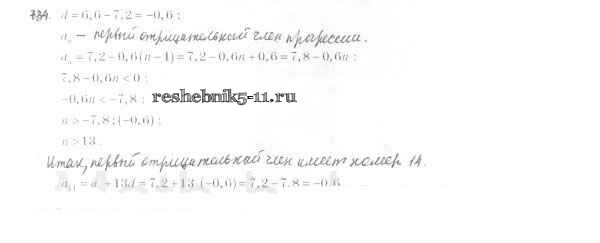 734. d = 6,6 − 7,2 = −0,6 ;
aₙ — первый отрицательный член прогрессии.
aₙ = 7,2 − 0,6 (n − 1) = 7,2 − 0,6n + 0,6 = 7,8 − 0,6n ;
7,8 − 0,6n < 0 ;
−0,6n < −7,8 ; reshebnik5-11.ru
n > −7,8 : (−0,6) ;
n > 13 .
Итак, первый отрицательный член имеет номер 14.
a₁₄ = a + 13d = 7,2 + 13 · (−0,6) = 7,2 − 7,8 = −0,6